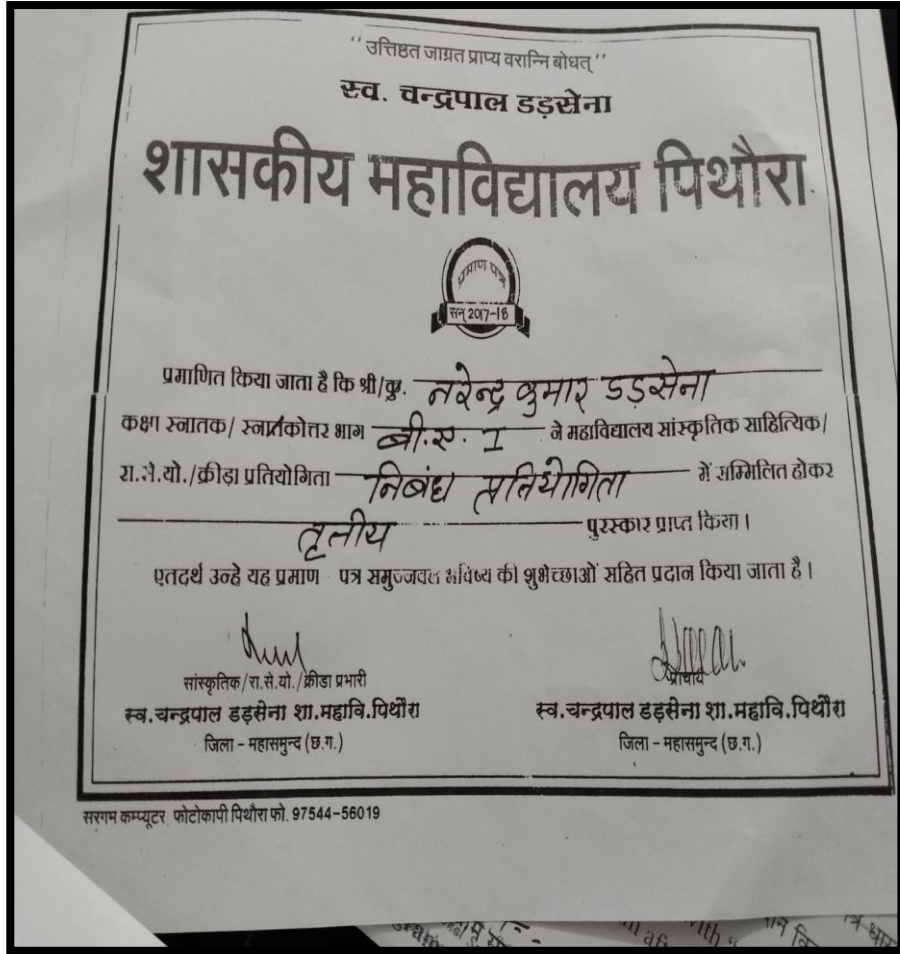 '' उत्तिष्ठत जाग्रत प्राप्य वरान्नि बोधत् ''
स्व. चन्द्रपाल डड़सेना
शासकीय महाविद्यालय पिथौरा
प्रमाण पत्र
सन् 2017-18
प्रमाणित किया जाता है कि श्री/कु. नरेन्द्र कुमार डड़सेना
कक्षा स्नातक/ स्नातकोत्तर भाग बी.ए. I ने महाविद्यालय सांस्कृतिक साहित्यिक/
रा.से.यो./क्रीड़ा प्रतियोगिता निबंध प्रतियोगिता में सम्मिलित होकर
तृतीय पुरस्कार प्राप्त किया।
एतदर्थ उन्हे यह प्रमाण पत्र समुज्जवल भविष्य की शुभेच्छाओं सहित प्रदान किया जाता है।
सांस्कृतिक/रा.से.यो./क्रीडा प्रभारी
स्व.चन्द्रपाल डड़सेना शा.महावि.पिथौरा
जिला - महासमुन्द (छ.ग.)
प्राचार्य
स्व.चन्द्रपाल डड़सेना शा.महावि.पिथौरा
जिला - महासमुन्द (छ.ग.)
सरगम कम्प्यूटर, फोटोकापी पिथौरा फो. 97544-56019